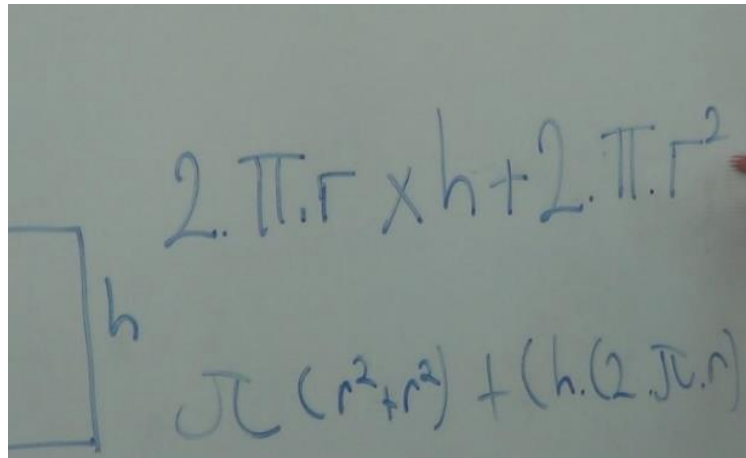 2.π.r × h + 2.π.r²
h
π (r² + r²) + (h.(2.π.r)